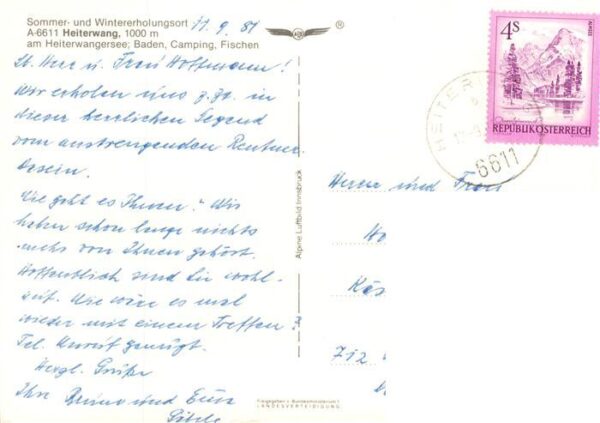 Sommer- und Wintererholungsort
A-6611 Heiterwang, 1000 m
am Heiterwangersee; Baden, Camping, Fischen
11.9.81
®
Lb. Herr u. Frau Hoffmann!
Wir erholen uns z.Zt. in
dieser herrlichen Gegend
vom anstrengenden Rentner-
dasein.
Wie geht es Ihnen? Wir
haben schon lange nichts
mehr von Ihnen gehört.
Hoffentlich sind Sie wohl-
auf. Wie wäre es mal
wieder mit einem Treffen?
Tel. Anruf genügt.
Herzl. Grüße
Ihr Bruno und Eure
Alpine Luftbild Innsbruck
Freigegeben v. Bundesministerium f.
LANDESVERTEIDIGUNG
4S
ALMSEE
REPUBLIK ÖSTERREICH
HEITERW
6611
Herrn und Frau
Ho
Käs
712